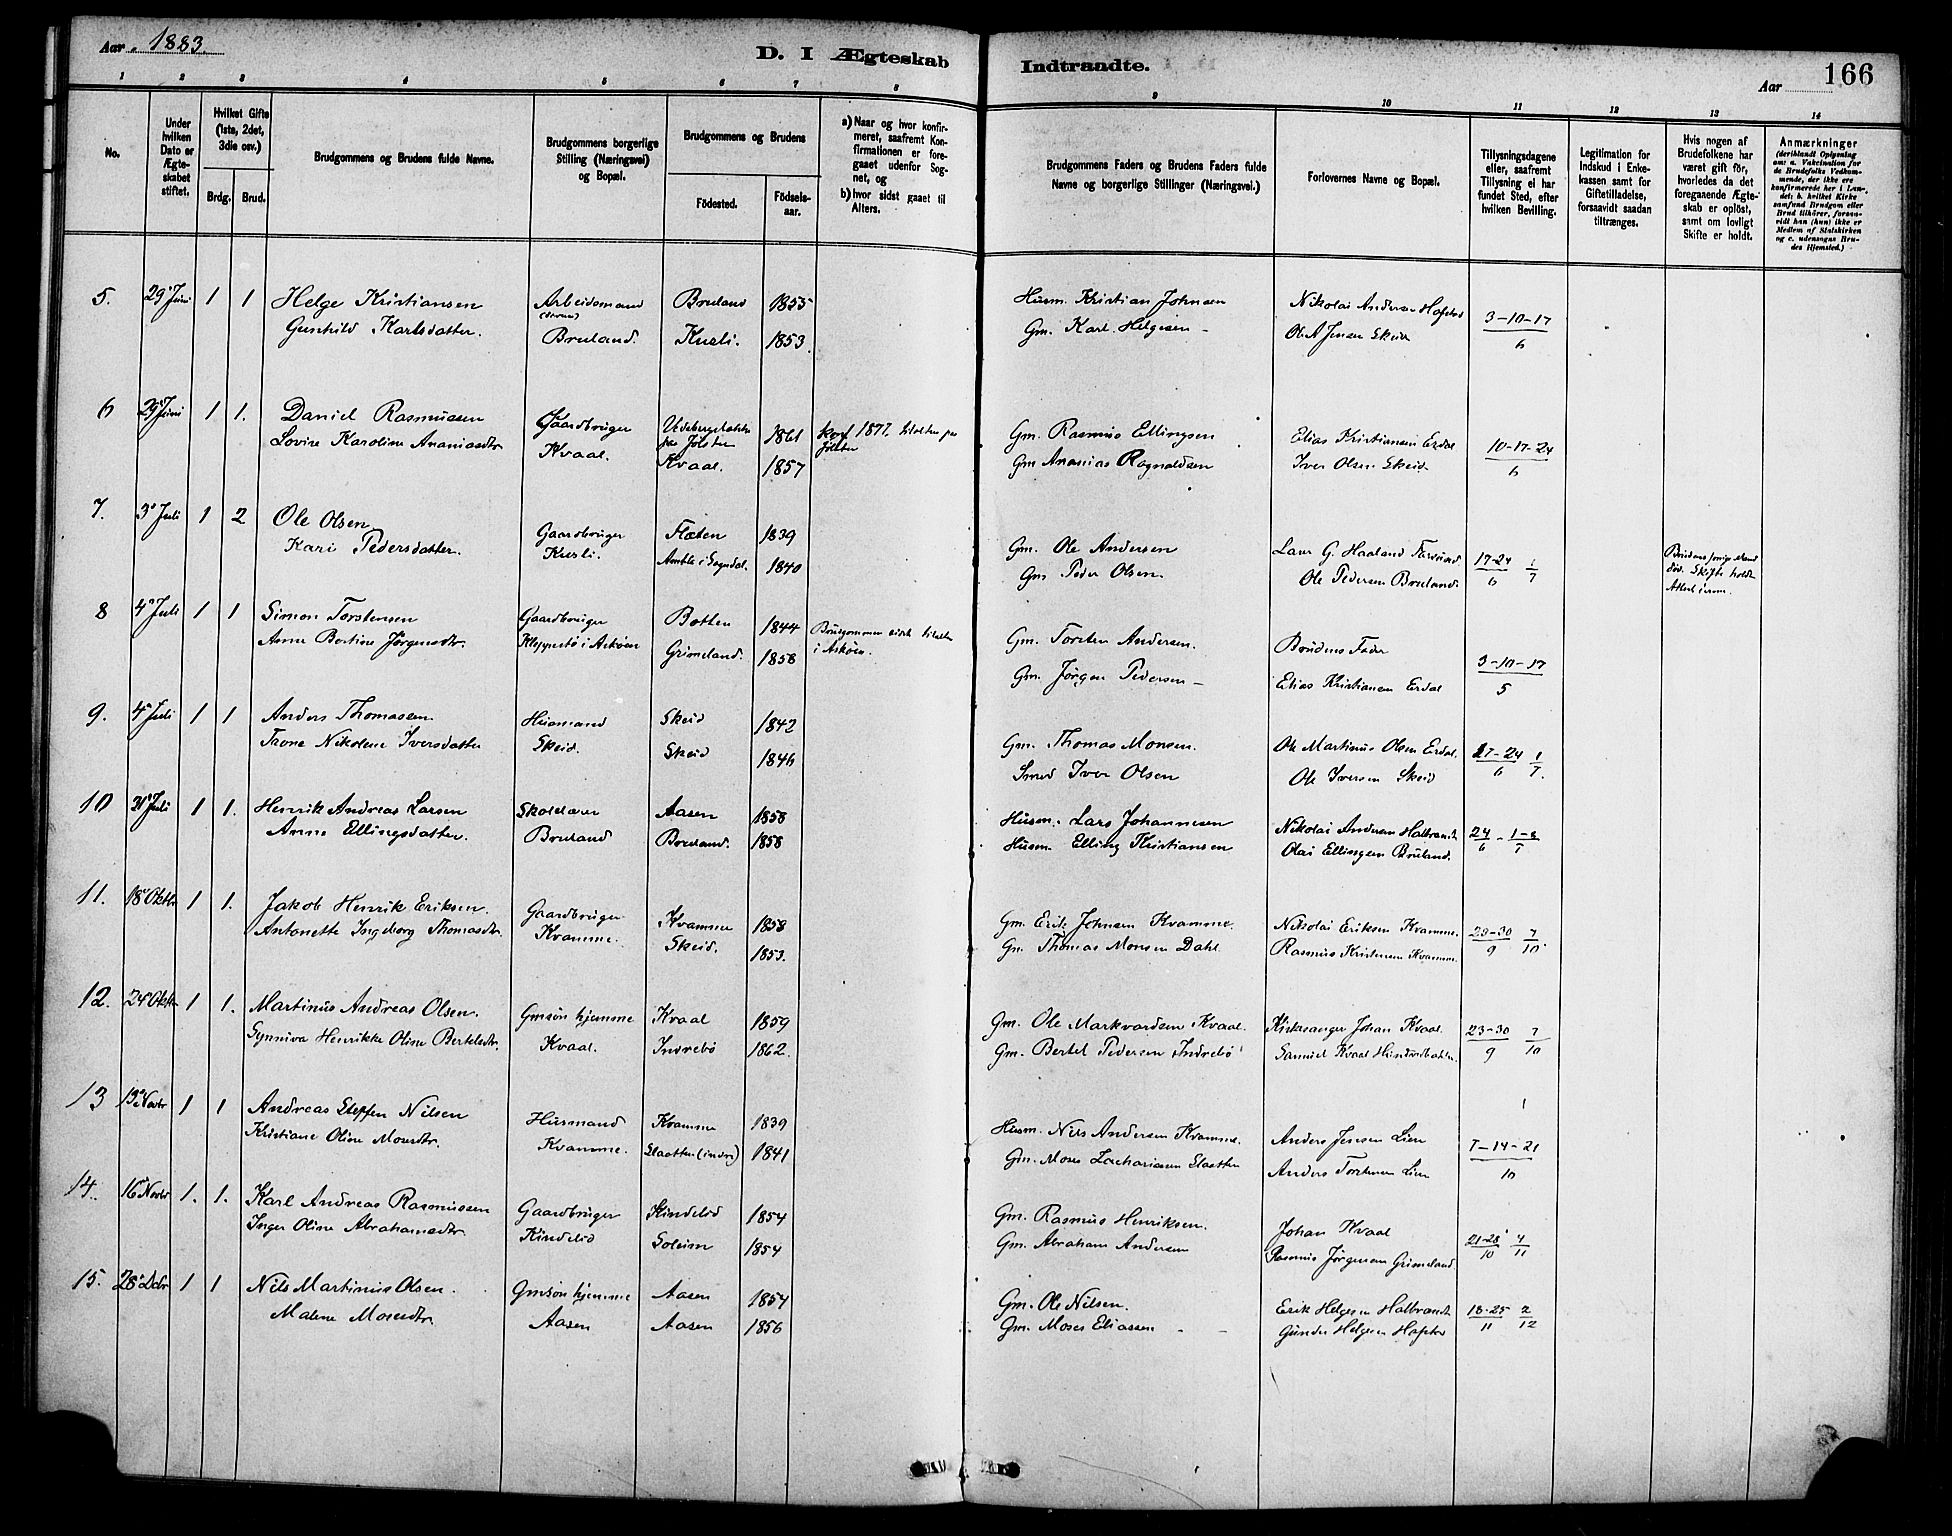 Aar 1883.
D. I Ægteskab Indtraadte.
Aar 166
1 2 3 4 5 6 7 8 9 10 11 12 13 14
No.
Under hvilken Dato er Ægteskabet stiftet.
Hvilket Gifte (1ste, 2det, 3die osv.)
Brdg. Brud.
Brudgommens og Brudens fulde Navne.
Brudgommens borgerlige Stilling (Næringsvei) og Bopæl.
Brudgommens og Brudens
Födested. Födselsaar.
a) Naar og hvor konfirmeret, saafremt Konfirmationen er foregaaet udenfor Sognet, og
b) hvor sidst gaaet til Alters.
Brudgommens Faders og Brudens Faders fulde Navne og borgerlige Stillinger (Næringsvei.)
Forlovernes Navne og Bopæl.
Tillysningsdagene eller, saafremt Tillysning ei har fundet Sted, efter hvilken Bevilling.
Legitimation for Indskud i Enkekassen samt for Giftetilladelse, forsaavidt saadan tiltrænges.
Hvis nogen af Brudefolkene har været gift för, hvorledes da det foregaaende Ægteskab er oplöst, samt om lovligt Skifte er holdt.
Anmærkninger (deriblandt Opgivning om: a. Vakcination for de Brudefolks Vedkommende, der ikke ere konfirmerede her i Landet; b. hvilket Kirkesamfund Brudgom eller Brud tilhörer, forsaavidt han (hun) ikke er Medlem af Statskirken og c. udensogns Brudes Hjemsted.)
5. 29 Juni 1 1 Helge Kristiansen Arbeidsmand Bruland 1855 Husm. Kristian Johnsen Nikolai Andersen Hafstad 3-10-17
Gunhild Karlsdatter. Bruland. Kusli. 1853. Gm. Karl Helgesen Ole A Jensen Skeid 6
6 29 Juni 1 1. Daniel Rasmussen Gaardbruger 1861 konf 1877 Gm. Rasmus Ellingsen Elias Kristiansen Erdal 10-17-24
Lovise Karoline Ananiasdtr Kvaal. Jölster Kvaal. 1857 Jölster Gm Ananias Ragnaldsen Iver Olsen Skeid 6
7. 3 Juli 1 2 Ole Olsen Gaardbruger Flæten 1839 Gm. Ole Andersen Lars G. Haaland 17-24 1
Kari Pedersdatter. Kusli. Amble i Sogndal. 1840 Gm Peder Olsen. Ole Pedersen Bruland. 6 7 Skifte holdt
8 4 Juli 1 1 Simon Torstensen Gaardbruger Botten 1844 Brudgommen sidst Gm. Torsten Andersen. Brudens Fader 3-10-17
Anne Bertine Jörgensdtr. Kleppestö i Asköen Grimeland. 1858 i Asköen. Gm. Jörgen Pedersen Elias Kristiansen Erdal 5
9. 4 Juli 1 1 Anders Thomassen Husmand Skeid 1842 Gm. Thomas Monsen. Ole Martinus Olsen Erdal. 17-24 1
Trone Nikoline Iversdatter Skeid. Skeid 1846 Smed Iver Olsen Ole Iversen Skeid 6 7.
10 Juli 1 1. Henrik Andreas Larsen Skolelærer Aasen 1858 Husm. Lars Johannesen Nikolai Andersen Halbrandt 24 - 1-8
Anne Ellingsdatter. Bruland Bruland. 1858 Husm Elling Kristiansen Olai Ellingsen Bruland. 6 7
11. 18 Oktbr 1 1. Jakob Henrik Eriksen. Gaardbruger Kvamme 1858 Gm. Erik Johnsen Kvamme. Nikolai Eriksen Kvamme. 23-30 7
Antonette Ingeborg Thomasdtr. Kvamme. Skeid. 1853. Gm. Thomas Monsen Dahl Rasmus Kristensen Kvamme. 9 10.
12. 24 Oktbr 1 1. Martinus Andreas Olsen. Gmsön hjemme Kvaal 1859 Gm. Ole Markvardsen Kvaal. Kirkesanger Johan Kvaal. 23-30 7
Synniva Henrikke Oline Bertelsdtr. Kvaal. Indrebö 1862. Gm. Bertel Pedersen Indrebö Samuel Kvaal 9 10
13 Novbr 1 1 Andreas Steffen Nilsen Husmand Kvamme 1839 Husm. Nils Andersen Kvamme. Anders Jensen Lien 7-14-21
Kristiane Oline Mosesdtr. Kvamme. Slaatten (indre) 1841 Gm. Moses Zachariasen Slaatten Anders Torstensen Lien 10
14. 16 Novbr 1. 1. Karl Andreas Rasmussen Gaardbruger Kindelid 1854 Gm. Rasmus Henriksen. Johan Kvaal 21-28 4
Inger Oline Abrahamsdtr. Kindelid Soleim 1854 Gm. Abraham Andersen Rasmus Jörgensen Grimeland. 10 11
15. 28 Dcbr 1 1 Nils Martinus Olsen. Gmsön hjemme Aasen 1854 Gm. Ole Nilsen. Erik Helgesen Halbrandt 18-25 2
Malene Mosesdtr. Aasen Aasen 1856 Gm. Moses Eliassen Gunder Helgesen Hafstad 11 12